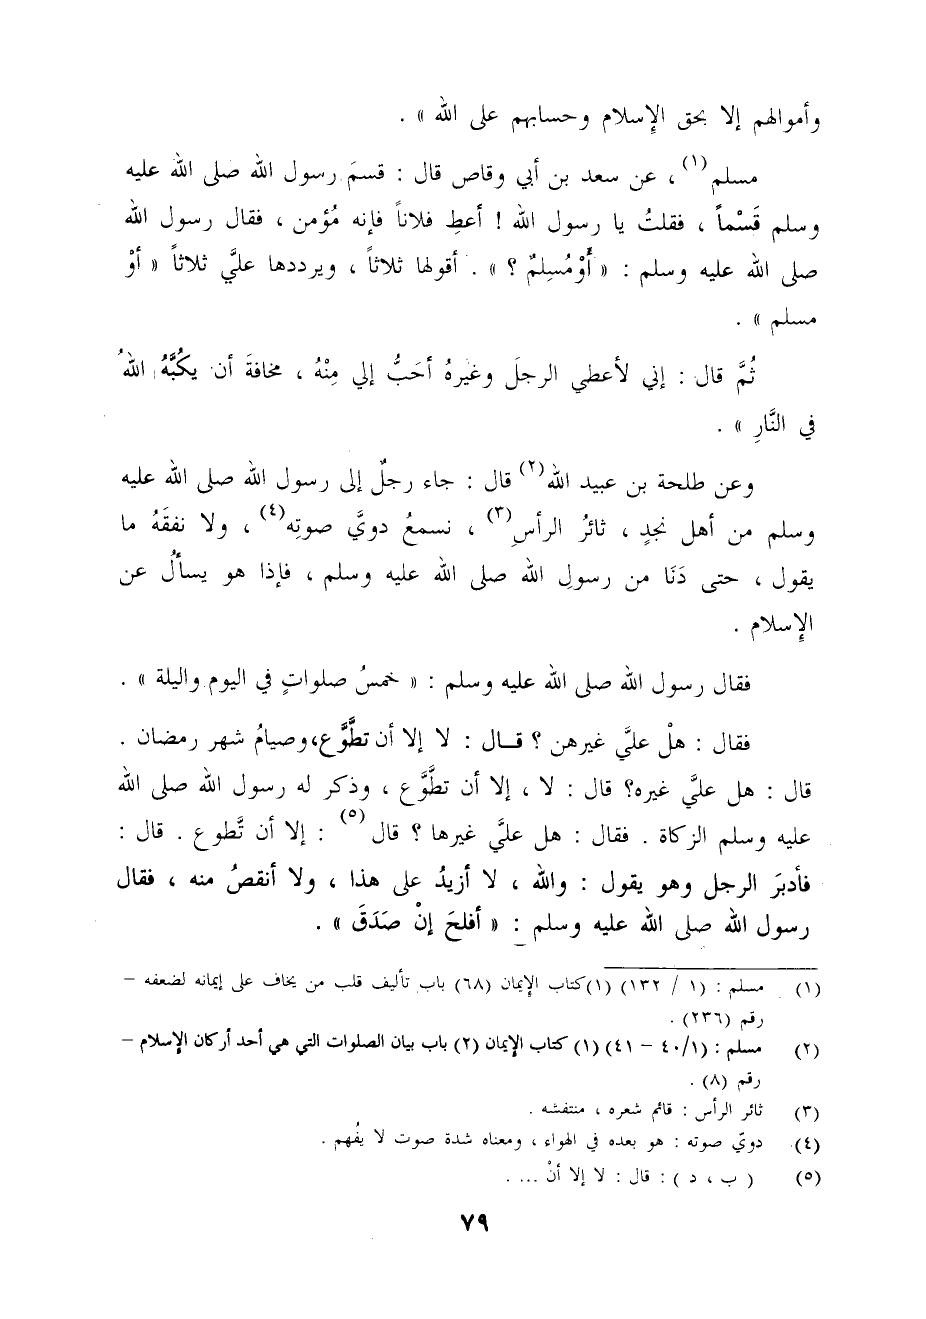 وأموالهم إلا بحق الإسلام وحسابهم على الله » .
مسلم(١) ، عن سعد بن أبي وقاص قال : قسمَ رسول الله صلى الله عليه
وسلم قَسْماً ، فقلتُ يا رسول الله ! أعطِ فلاناً فإنه مُؤمن ، فقال رسول الله
صلى الله عليه وسلم : « أَوْمُسِلمٌ ؟ » . أقولها ثلاثاً ، ويرددها عليَّ ثلاثاً « أوْ
مسلم » .
ثُمَّ قال : إني لأعطي الرجلَ وغيرهُ أحَبُّ إلي مِنْهُ ، مخافةَ أن يكُبَّهُ اللهُ
في النَّارِ » .
وعن طلحة بن عبيد الله(٢) قال : جاء رجلٌ إلى رسول الله صلى الله عليه
وسلم من أهل نجدٍ ، ثائرُ الرأسِ(٣) ، نسمعُ دويَّ صوتِه(٤) ، ولا نفقَهُ ما
يقول ، حتى دَنَا من رسولِ الله صلى الله عليه وسلم ، فإذا هو يسألُ عن
الإسلام .
فقال رسول الله صلى الله عليه وسلم : « خمسُ صلواتٍ في اليوم واليلة » .
فقال : هلْ عليَّ غيرهن ؟ قــال : لا إلا أن تطَّوَّع،وصيامُ شهر رمضان .
قال : هل عليَّ غيره؟ قال : لا ، إلا أن تطَّوَّع ، وذكر له رسول الله صلى الله
عليه وسلم الزكاة . فقال : هل عليَّ غيرها ؟ قال(٥) : إلا أن تَّطوع . قال :
فأدبرَ الرجل وهو يقول : والله ، لا أزيدُ على هذا ، ولا أنقصُ منه ، فقال
رسول الله صلى الله عليه وسلم : « أفلحَ إنْ صَدَقَ » .
(١) مسلم : (١ / ١٣٢) (١)كتاب الإيمان (٦٨) باب تأليف قلب من يخاف على إيمانه لضعفه –
رقم (٢٣٦) .
(٢) مسلم : (٤٠/١ – ٤١) (١) كتاب الإيمان (٢) باب بيان الصلوات التي هي أحد أركان الإسلام –
رقم (٨) .
(٣) ثائر الرأس : قائم شعره ، منتفشه .
(٤) دويّ صوته : هو بعده في الهواء ، ومعناه شدة صوت لا يُفهم .
(٥) ( ب ، د ) : قال : لا إلا أنْ ... .
٧٩